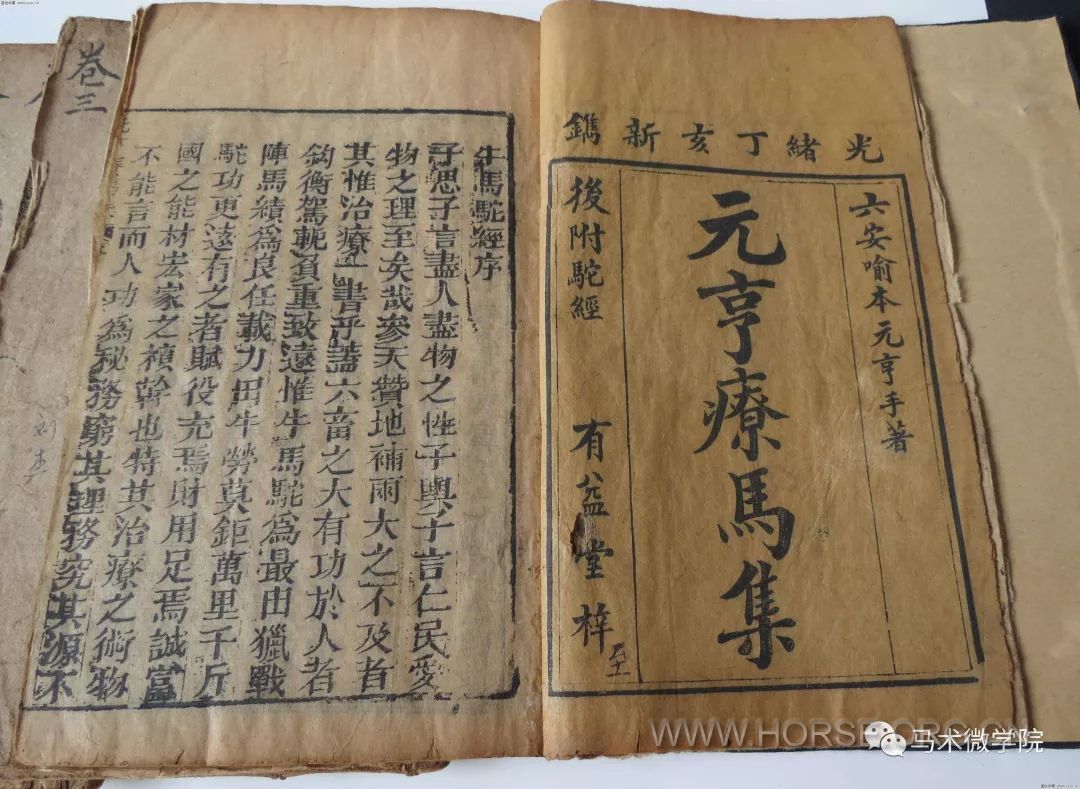 光緒丁亥新鐫
六安喻本元亨手著
元亨療馬集
後附駝經 有益堂梓
牛馬駝經序
子思子言盡人盡物之性子輿子言仁民愛
物之理至矣哉參天贊地補雨大之不及者
其惟治療一書乎蓋六畜之大有功於人者
鈎衡駕軛負重致遠惟牛馬駝爲最由獵戰
陣馬績爲良任載力田牛勞莫鉅萬里千斤
駝功更遠有之者賦役充焉財用足焉誠當
國之能材宏家之禎幹也特其治療之術物
不能言而人功爲秘務窮其理務究其源不
卷三
WWW.HORSE.ORG.CN
马术微学院